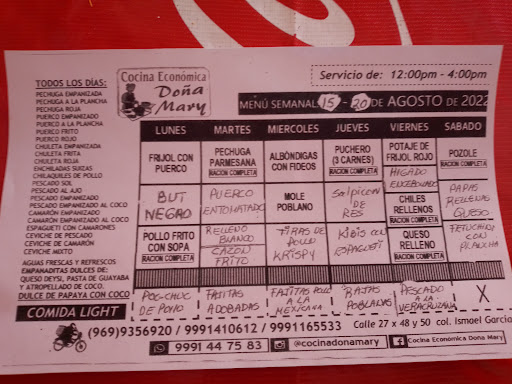 Cocina Económica
Doña
Mary
Servicio de: 12:00pm - 4:00pm
MENÚ SEMANAL: 15 - 20 DE AGOSTO DE 2022
TODOS LOS DÍAS:
PECHUGA EMPANIZADA
PECHUGA A LA PLANCHA
PECHUGA ROJA
PUERCO EMPANIZADO
PUERCO A LA PLANCHA
PUERCO FRITO
PUERCO ROJO
CHULETA EMPANIZADA
CHULETA FRITA
CHULETA ROJA
ENCHILADAS SUIZAS
CHILAQUILES DE POLLO
PESCADO SOL
PESCADO AL AJO
PESCADO EMPANIZADO
PESCADO EMPANIZADO AL COCO
CAMARÓN EMPANIZADO
CAMARÓN EMPANIZADO AL COCO
ESPAGUETI CON CAMARONES
CEVICHE DE PESCADO
CEVICHE DE CAMARÓN
CEVICHE MIXTO
AGUAS FRESCAS Y REFRESCOS
EMPANADITAS DULCES DE:
QUESO DEYSI, PASTA DE GUAYABA
Y ATROPELLADO DE COCO.
DULCE DE PAPAYA CON COCO
COMIDA LIGHT
LUNES
FRIJOL CON
PUERCO
BUT
NEGRO
POLLO FRITO
CON SOPA
RACION COMPLETA
POC-CHUC
DE POLLO
MARTES
PECHUGA
PARMESANA
RACION COMPLETA
PUERCO
ENTOMATADO
RELLENO
BLANCO
CAZON
FRITO
FAJITAS
ADOBADAS
MIERCOLES
ALBÓNDIGAS
CON FIDEOS
MOLE
POBLANO
TIRAS DE
POLLO
KRISPY
FAJITAS POLLO
A LA
MEXICANA
JUEVES
PUCHERO
(3 CARNES)
RACION COMPLETA
SALPICON
DE
RES
KIBIS CON
ESPAGUETI
RAJAS
POBLANAS
VIERNES
POTAJE DE
FRIJOL ROJO
RACION COMPLETA
HIGADO
ENCEBOLLADO
CHILES
RELLENOS
RACION COMPLETA
QUESO
RELLENO
RACION COMPLETA
PESCADO
A LA
VERACRUZANA
SABADO
POZOLE
RACION COMPLETA
PAPAS
RELLENAS
QUESO
FETUCHINI
CON
PLANCHA
X
(969)9356920 / 9991410612 / 9991165533
Calle 27 x 48 y 50 col. Ismael Garcia
9991 44 75 83
@cocinadonamary
Cocina Económica Doña Mary